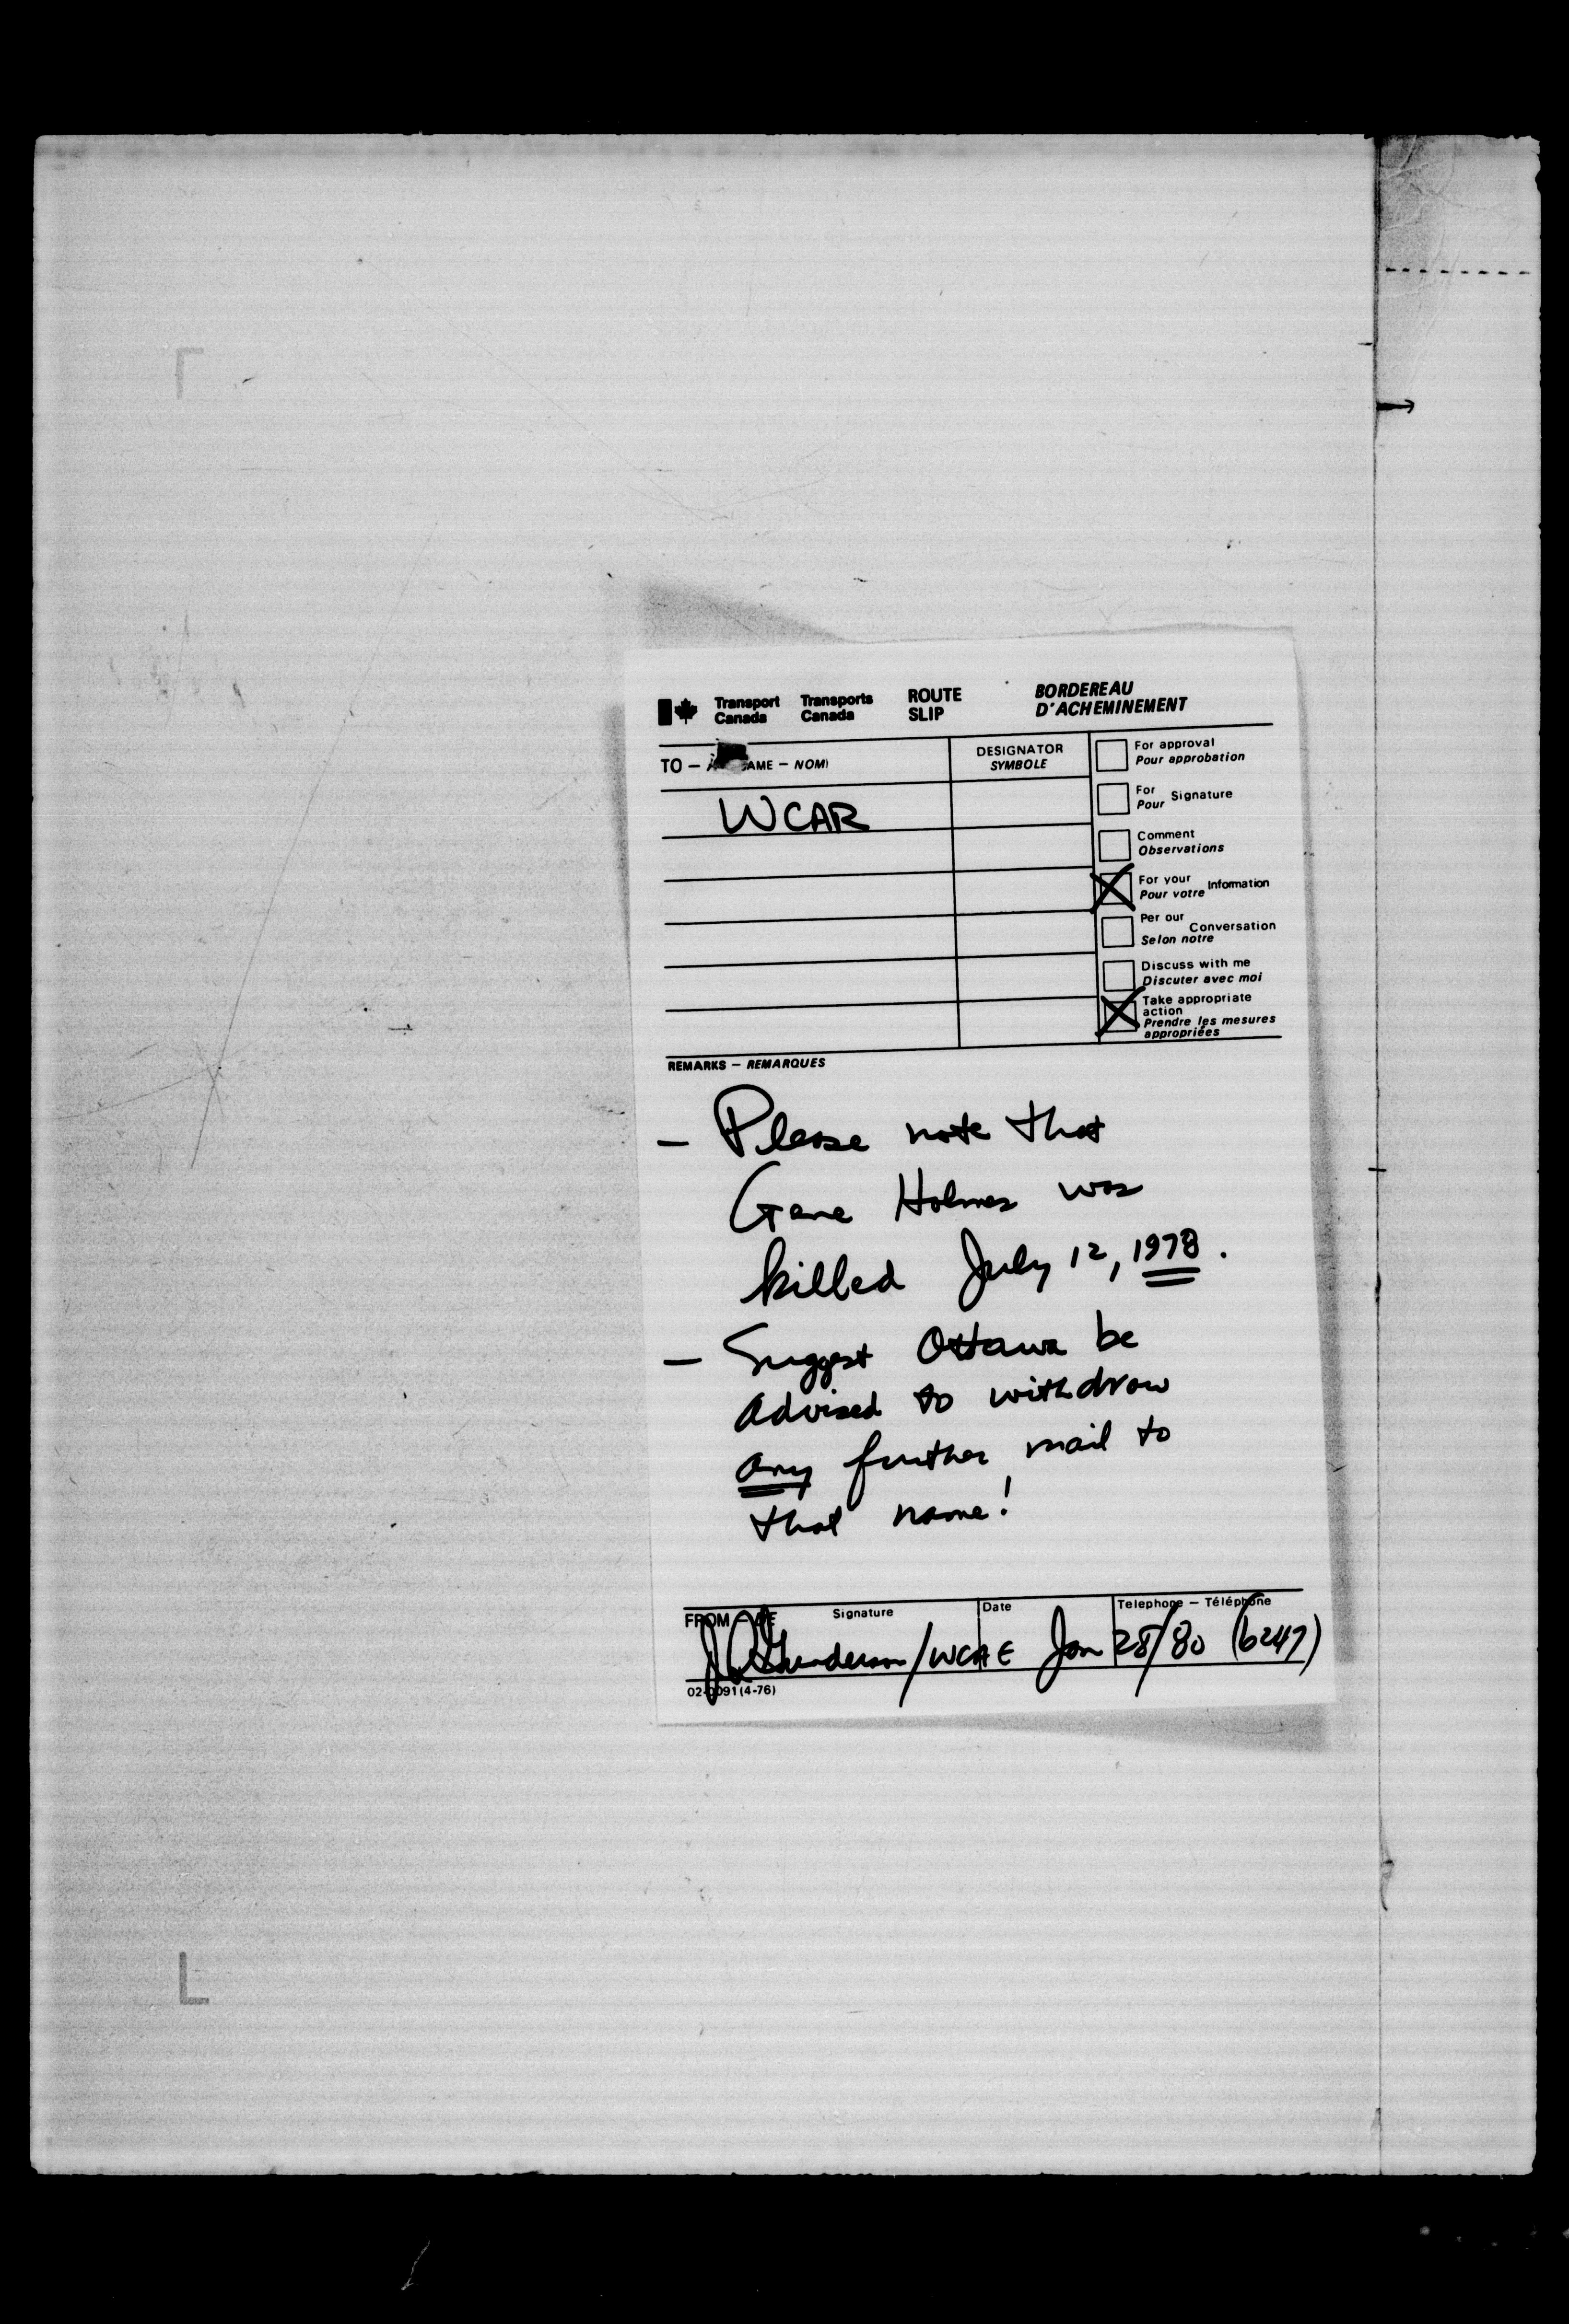 Transport Canada Transports Canada ROUTE SLIP BORDEREAU D'ACHEMINEMENT
TO – AME – NOM)
DESIGNATOR
SYMBOLE
WCAR
For approval
Pour approbation
For Pour Signature
Comment
Observations
For your
Pour votre Information
Per our
Selon notre Conversation
Discuss with me
Discuter avec moi
Take appropriate
action
Prendre les mesures
appropriées
REMARKS – REMARQUES
– Please note that
Gene Holmes was
killed July 12, 1978.
– Suggest Ottawa be
advised to withdraw
any further mail to
that name!
FROM – DE Signature Date Telephone – Téléphone
Gunderson/WCAE Jan 28/80 (6247)
02-0091 (4-76)